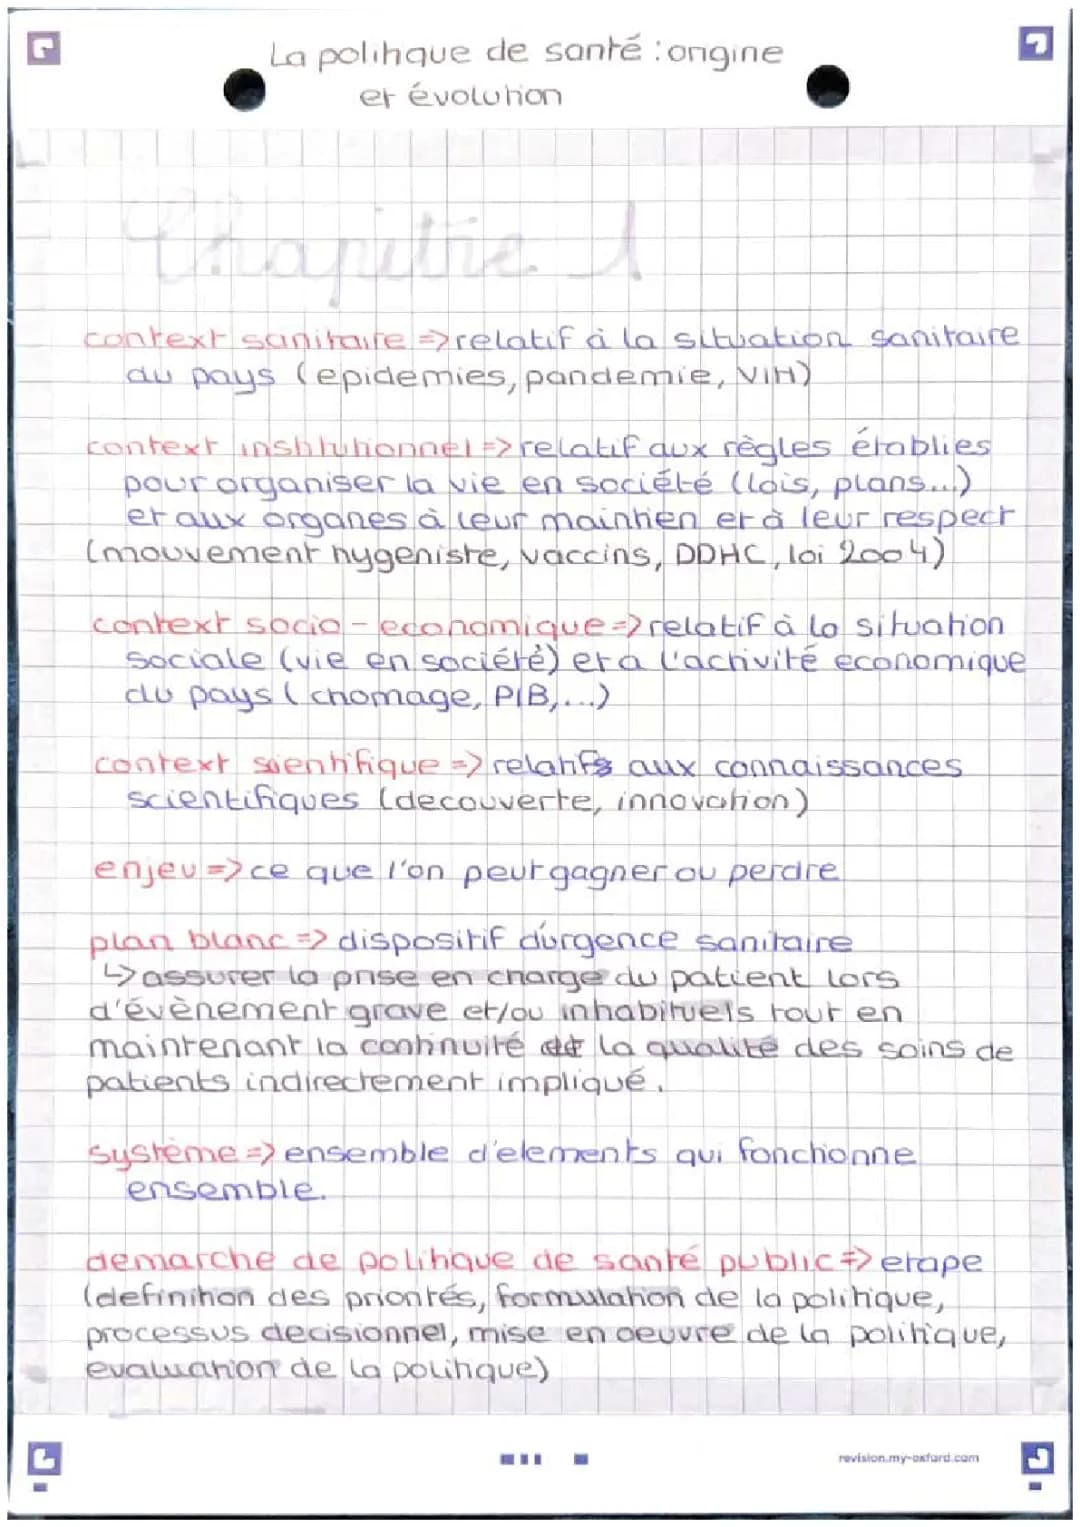 La politique de santé : origine
et évolution
Chapitre 1
context sanitaire => relatif à la situation sanitaire
du pays (epidemies, pandemie, VIH)
context institutionnel => relatif aux règles établies
pour organiser la vie en société (lois, plans...)
et aux organes à leur maintien et à leur respect
(mouvement hygeniste, vaccins, DDHC, loi 2004)
context socio-economique => relatif à la situation
sociale (vie en société) et a l'activité economique
du pays (chomage, PIB,...)
context scientifique => relatifs aux connaissances
scientifiques (decouverte, innovation)
enjeu => ce que l'on peut gagner ou perdre
plan blanc => dispositif d'urgence sanitaire
↳ assurer la prise en charge du patient lors
d'évènement grave et/ou inhabituels tout en
maintenant la continuité et la qualité des soins de
patients indirectement impliqué.
système => ensemble d'elements qui fonctionne
ensemble.
demarche de politique de santé public => etape
(definition des priorités, formulation de la politique,
processus decisionnel, mise en oeuvre de la politique,
evaluation de la politique)
revision.my-oxford.com